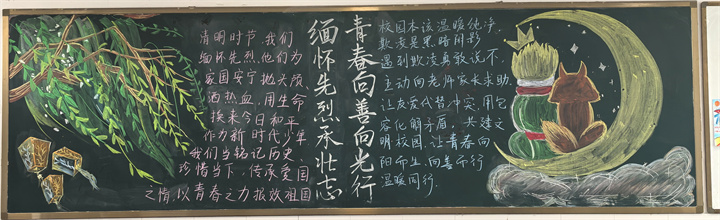 清明时节,我们
缅怀先烈,他们为
家国安宁抛头颅
洒热血,用生命
换来今日和平
作为新时代少年
我们当铭记历史、
珍惜当下,传承爱国
之情,以青春之力报效祖国
缅怀先烈承壮志
青春向善向光行
校园本该温暖纯净,
欺凌是黑暗阴影
遇到欺凌勇敢说不,
主动向老师家长求助,
让友爱代替冲突,用包
容化解矛盾,共建文
明校园,让青春向
阳而生,向善而行
温暖同行.